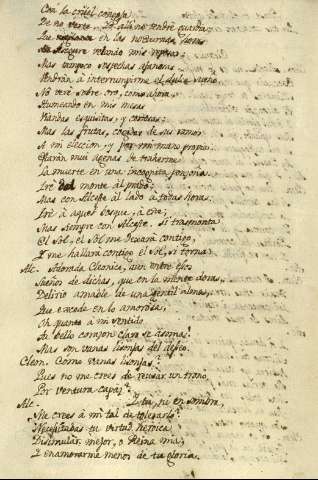 Con la cruel congoja
De no verte. De allá no tendré guardia
Que en las nocturnas horas
Asegure velando mis reposos;
Mas tampoco sospechas afanosas
Vendrán á interrumpirme el dulce sueño.
No veré sobre oro, como ahora,
Humeando en mis mesas
Viandas esquisitas, y costosas;
Mas las frutas, cogidas de sus ramos
A mi eleccion, y por mi mano propia,
Estarán muy agenas de traherme
La muerte en una incognita ponzoña.
Iré del monte al prado;
Mas con Alceste al lado á todas horas.
Iré á aquel bosque, á ese;
Mas siempre con Alceste. Si tramonta
El Sol, el Sol me dexará contigo,
Y me hallará contigo el Sol, si torna.
Alc. Adorada Cleonice, bien entre esos
Sueños de dichas, que en la mente doras,
Delirio amable de una gentil alma,
Que excede en lo amorosa,
Oh quanto á mi sentido
tu bello corazon claro se asoma!
Mas son vanas lisonjas del deseo.
Cleon. Cómo vanas lisonjas?
Pues no me crees de reusar un trono
Por ventura capaz?
Alc. Y tu, ni en sombra,
Me crees á mi tal de tolerarlo?
Necesitabas tu virtud heroica
Disimular mejor, o Reina mia;
Y enamorarme menos de tu gloria.